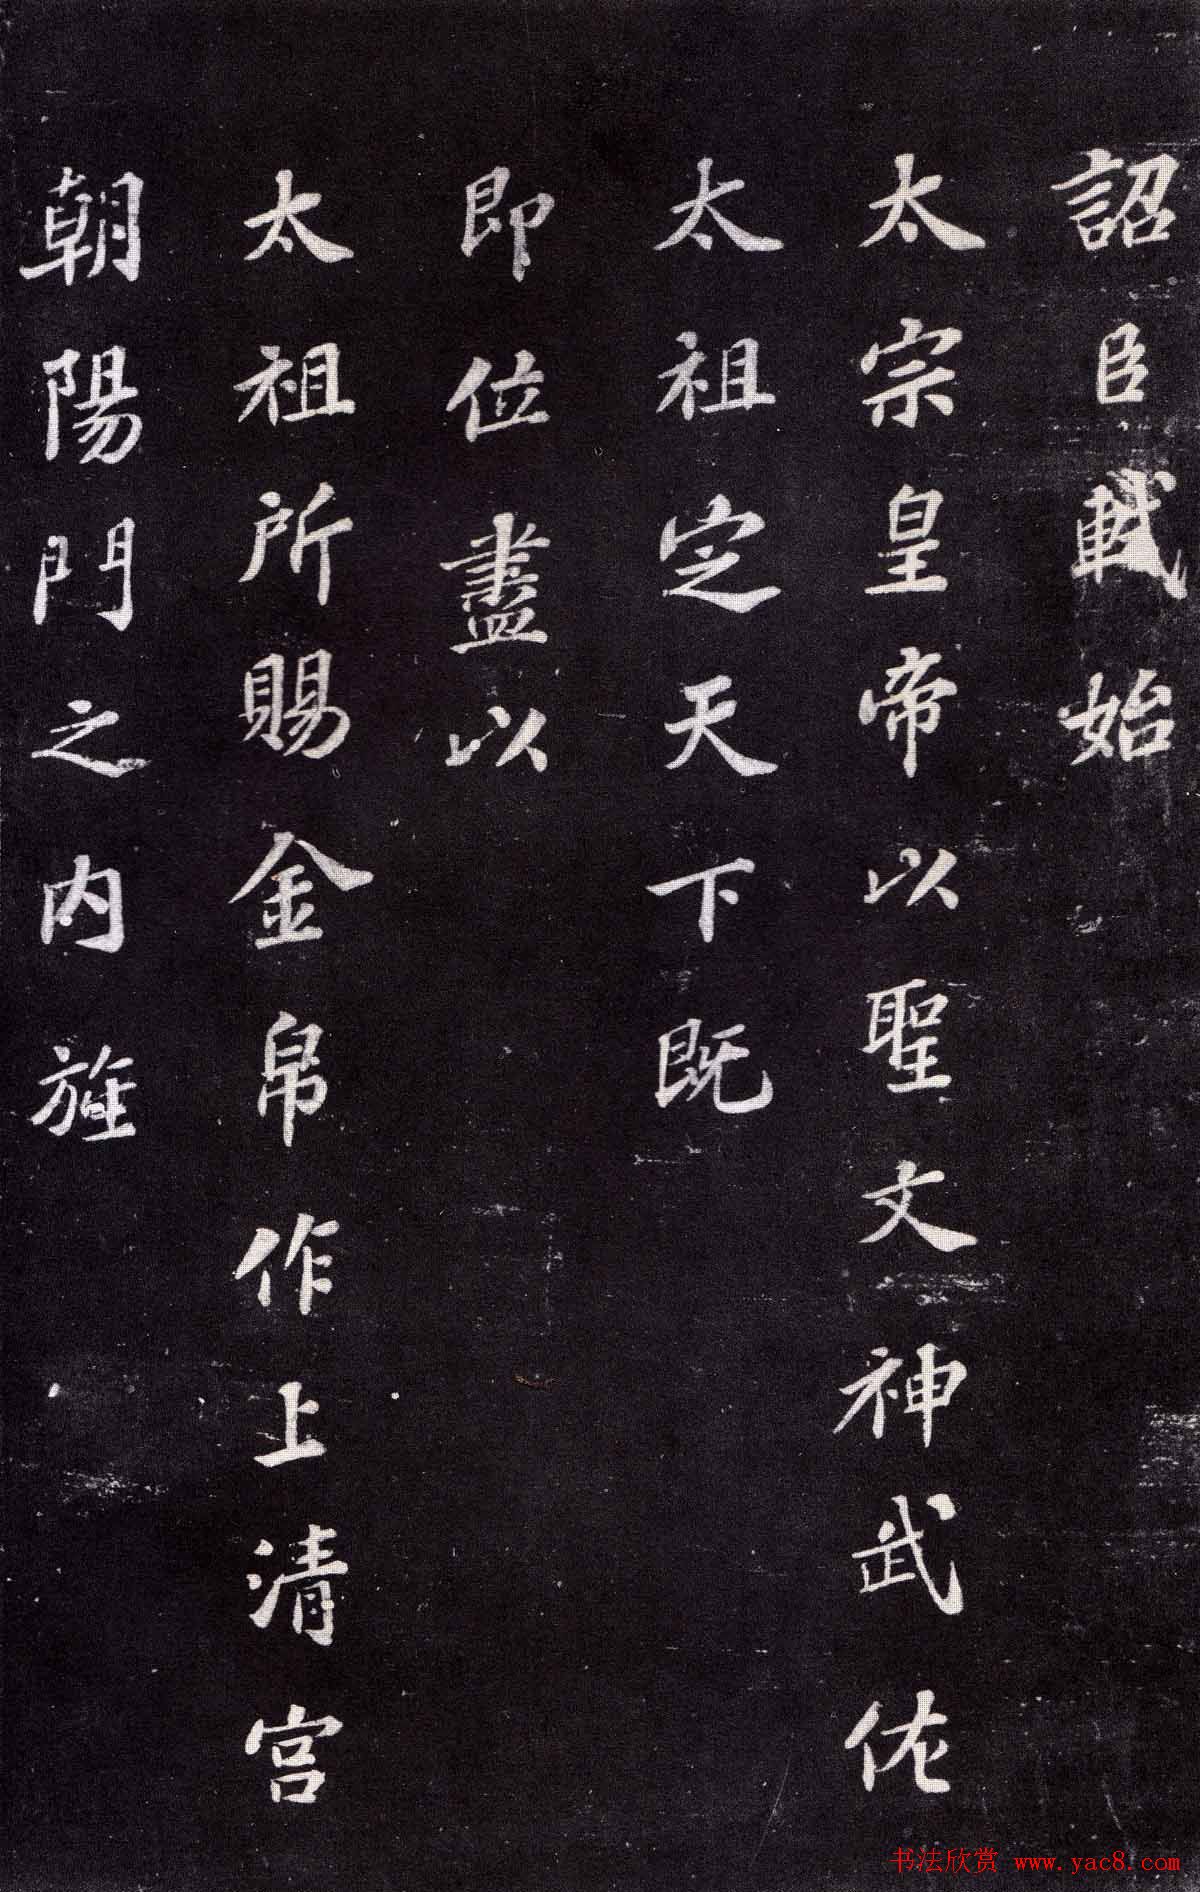 詔臣軾始
太宗皇帝以聖文神武佐
太祖定天下既
即位盡以
太祖所賜金帛作上清宮
朝陽門之内旌
书法欣赏 www.yac8.com